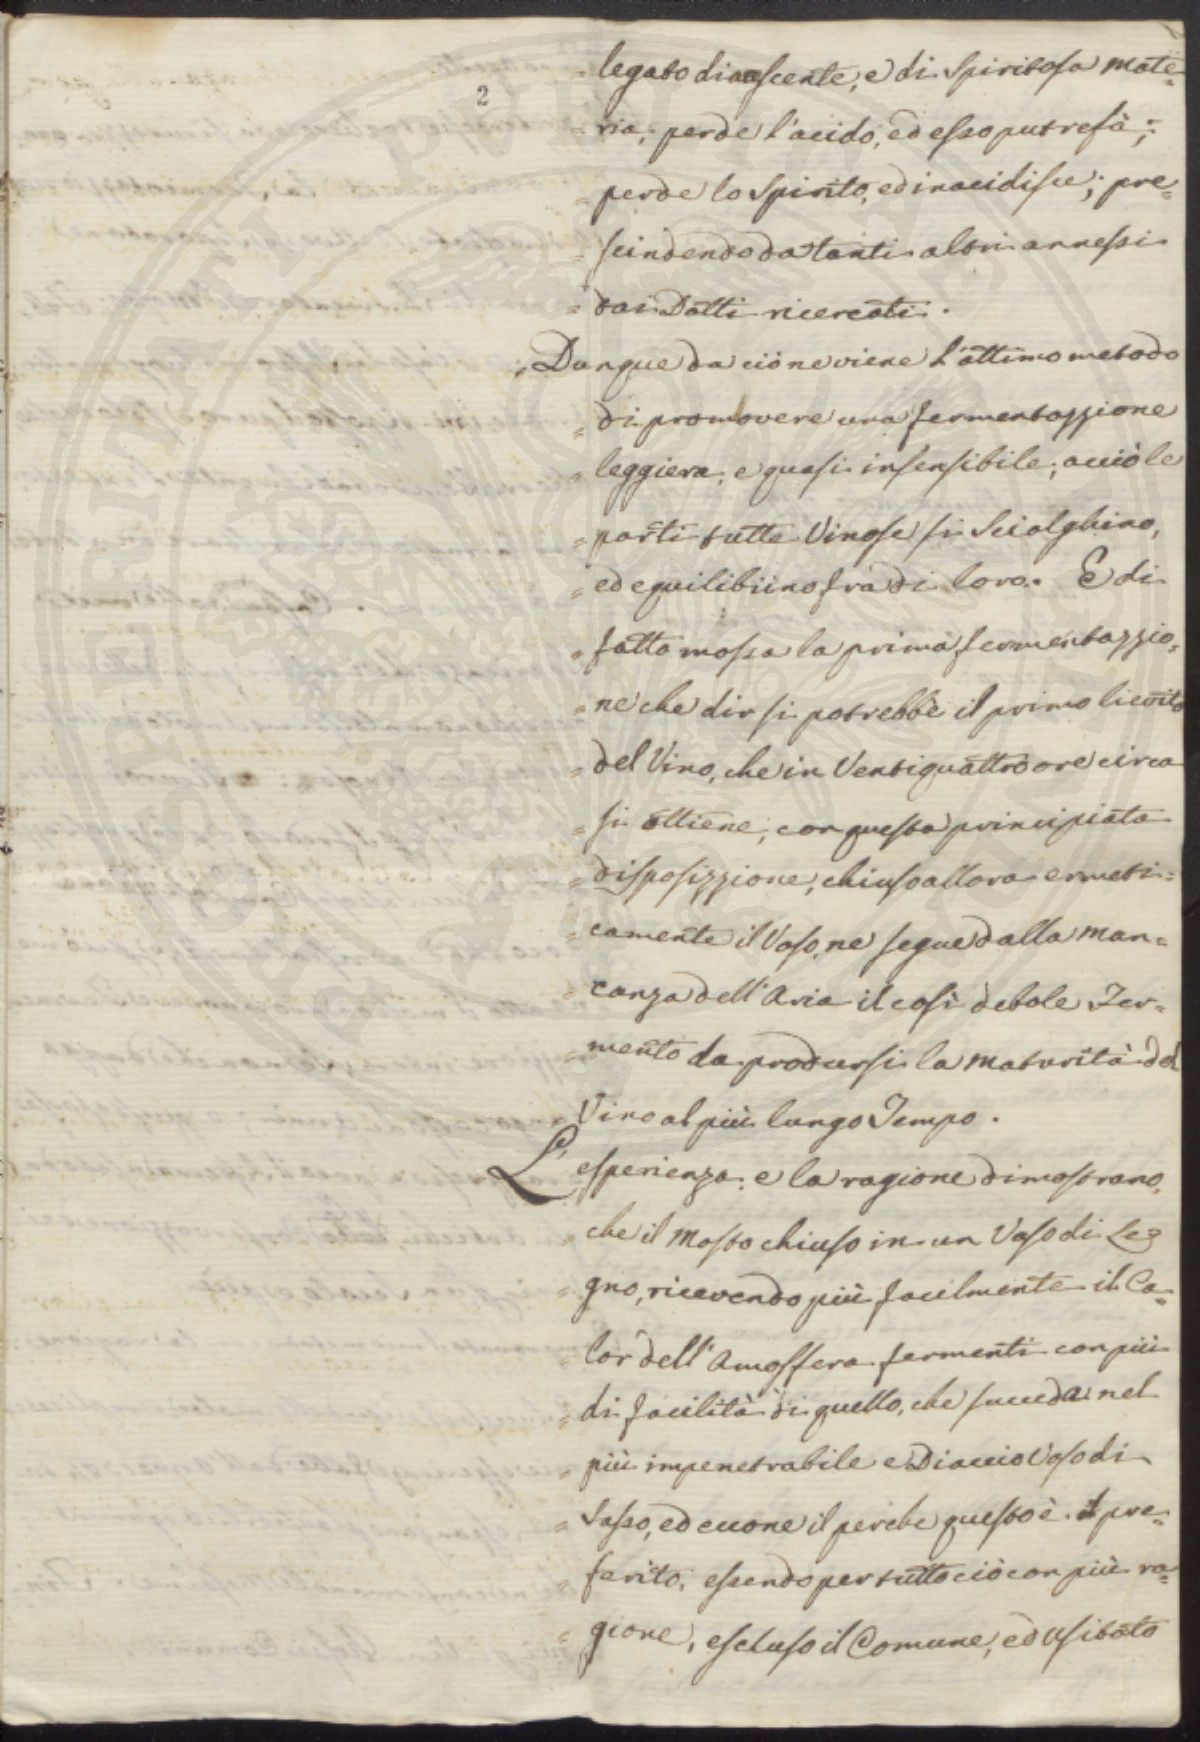 2
legato di acescente, e di Spiritosa mate=
= ria; perde l'acido, ed esso putrefà;
= perde lo Spirito, ed inacidisce; pre=
= scindendo da tanti altri annessi
= dai Dotti ricercati.
Dunque da ciò ne viene l'ottimo metodo
= di promovere una fermentazzione
= leggiera, e quasi insensibile, acciò le
= parti tutte Vinose si Sciolghino,
= ed equilibriino frà di loro. E di
= fatto mossa la prima fermentazzio=
= ne che dir si potrebbe il primo lievito
= del Vino, che in Ventiquattro ore circa
= si ottiene, con questa principiata
= disposizzione, chiuso allora ermeti=
= camente il Vaso, ne segue dalla man=
= canza dell'Aria il così debole Fer=
= mento da prodursi la maturità del
= Vino al più lungo Tempo.
L'esperienza, e la ragione dimostrano,
= che il Mosto chiuso in un Vaso di Leg
= gno, ricevendo più facilmente il Ca=
= lor dell'Amosfera fermenti con più
= di facilità di quello, che succeda nel
= più impenetrabile e Diaccio Vaso di
= Sasso, ed eccone il perche questo è il pre=
= ferito, essendo per tutto ciò con più ra=
= gione, escluso il Comune, ed usitato